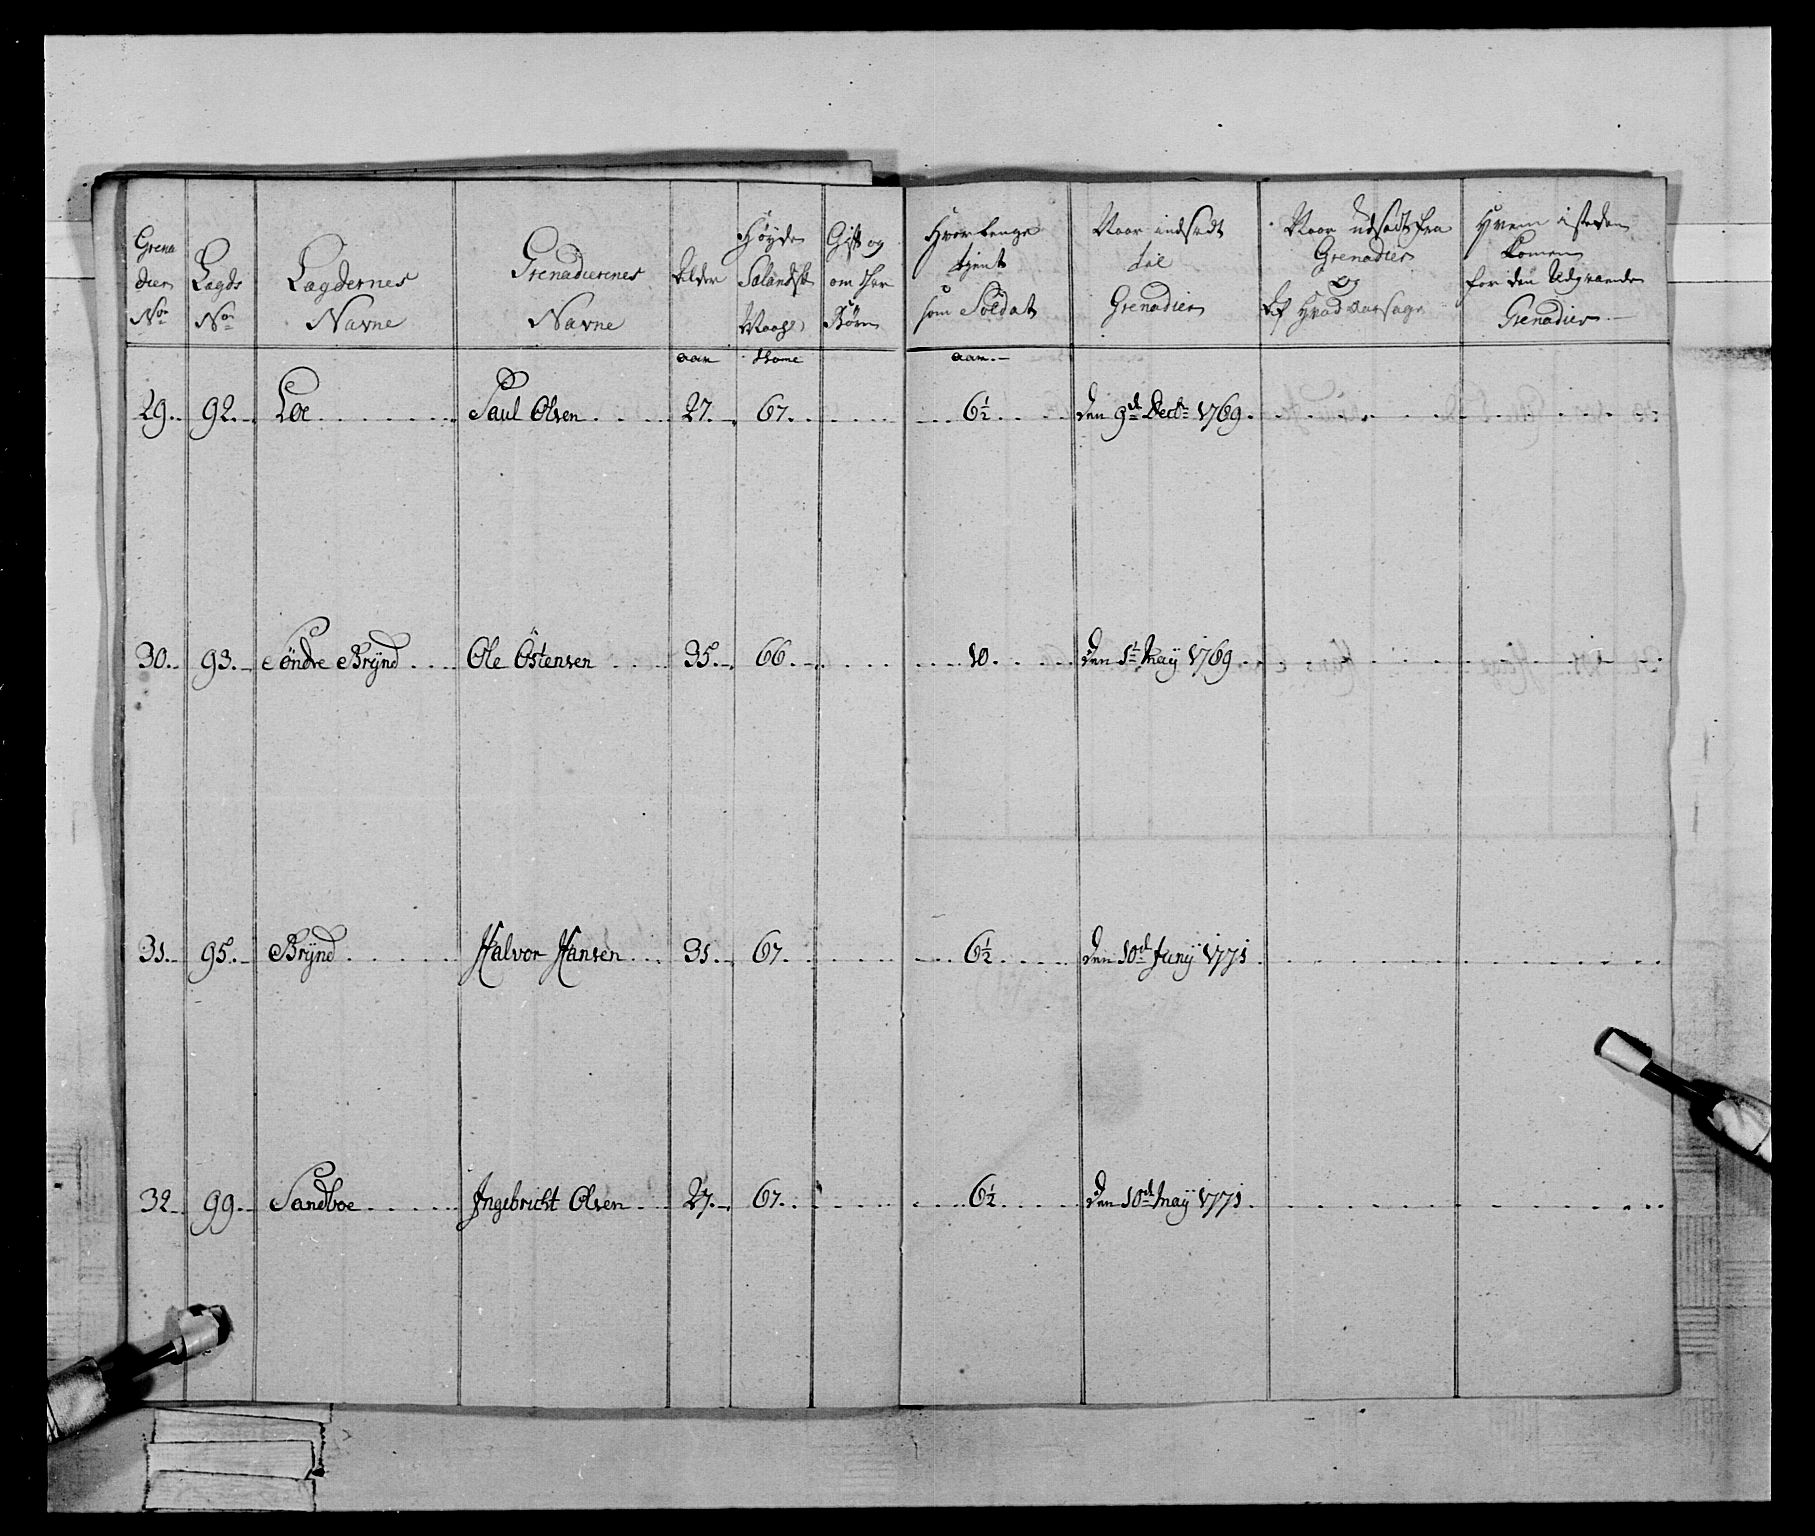 Grena
dier
No
Lægds
No
Lægdernes
Navne
Grenadierenes
Navne
Alder
Høyde
Salandsk
Maal
Gift og
om ther
Børn
Hvor lenge
tjent
som Soldat
Naar indsadt
til
Grenadier
Naar udsadt fra
Grenadier
og
Af Hvad aarsage
Hvem i steden
komen
for den Udgaaende
Grenadier
aar tome aar
29. 92. Loe Paul Olsen 27. 67. 6½ den 9d Decb: 1769.
30. 93. Söndre Brÿnd Ole Östensen 35. 66. 10. den 1t Maÿ 1769.
31. 95. Brÿnd Halvor Hansen 31. 67. 6½ den 10d Junÿ 1771.
32. 99. Sandboe Ingebricht Olsen 27. 67. 6½ den 10d Maÿ 1771.